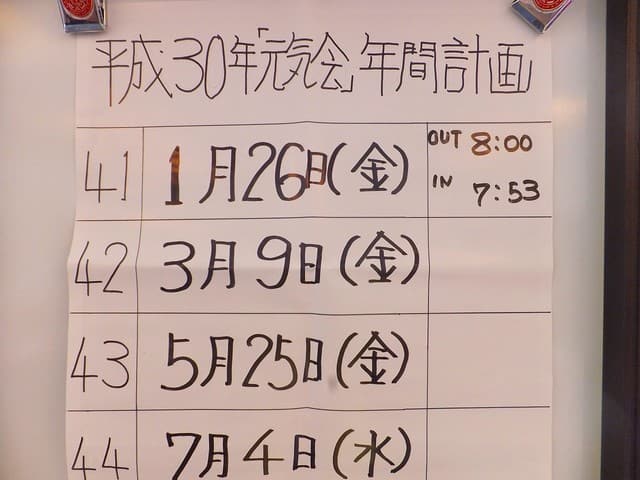 平成30年「元気会」年間計画
41 1月26日(金) OUT 8:00
IN 7:53
42 3月9日(金)
43 5月25日(金)
44 7月4日(水)